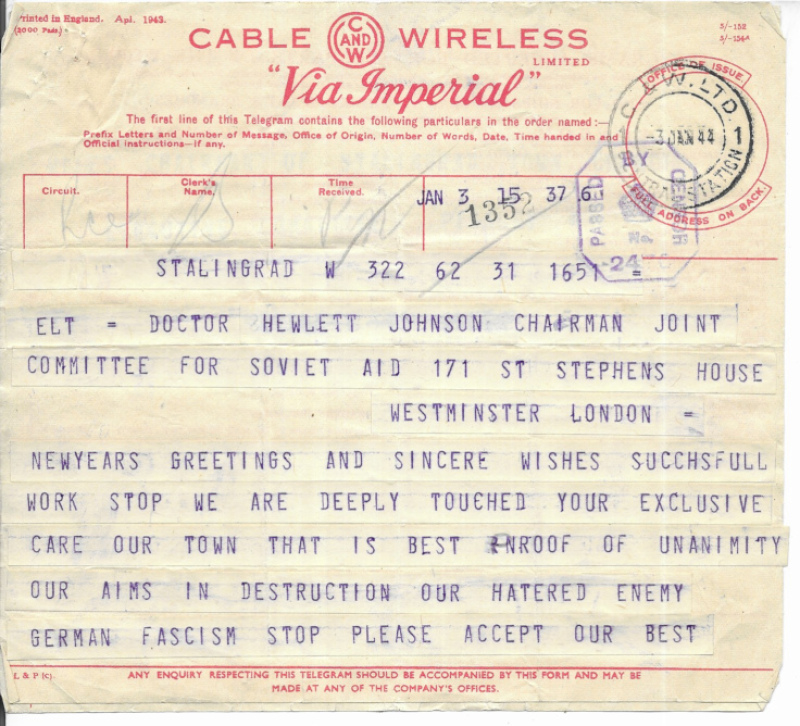 Printed in England. Apl. 1943.
(2000 Pads.)
5/-152
5/-154A
CABLE C AND W WIRELESS
LIMITED
"Via Imperial"
OFFICE OF ISSUE
C. & W. LTD.
-3 JAN 44 1
STATION
FULL ADDRESS ON BACK.
The first line of this Telegram contains the following particulars in the order named :—
Prefix Letters and Number of Message, Office of Origin, Number of Words, Date, Time handed in and
Official instructions—if any.
Circuit.
Clerk's
Name.
Time
Received.
JAN 3 15 37 6
1352
PASSED BY CENSOR
No.
STALINGRAD W 322 62 31 1651 =
ELT = DOCTOR HEWLETT JOHNSON CHAIRMAN JOINT
COMMITTEE FOR SOVIET AID 171 ST STEPHENS HOUSE
WESTMINSTER LONDON =
NEWYEARS GREETINGS AND SINCERE WISHES SUCCHSFULL
WORK STOP WE ARE DEEPLY TOUCHED YOUR EXCLUSIVE
CARE OUR TOWN THAT IS BEST PNROOF OF UNANIMITY
OUR AIMS IN DESTRUCTION OUR HATERED ENEMY
GERMAN FASCISM STOP PLEASE ACCEPT OUR BEST
L & P (C).
ANY ENQUIRY RESPECTING THIS TELEGRAM SHOULD BE ACCOMPANIED BY THIS FORM AND MAY BE
MADE AT ANY OF THE COMPANY'S OFFICES.